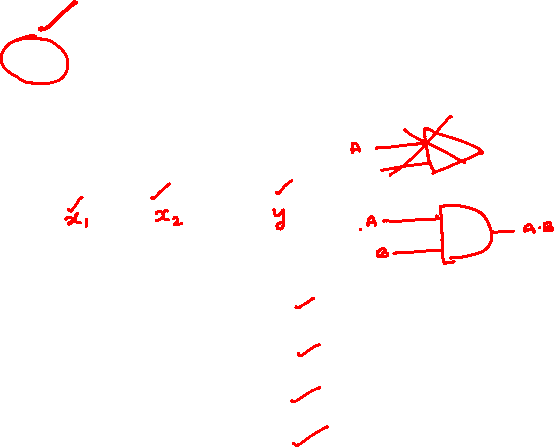 A
x₁ x₂ y
.A
B
A·B